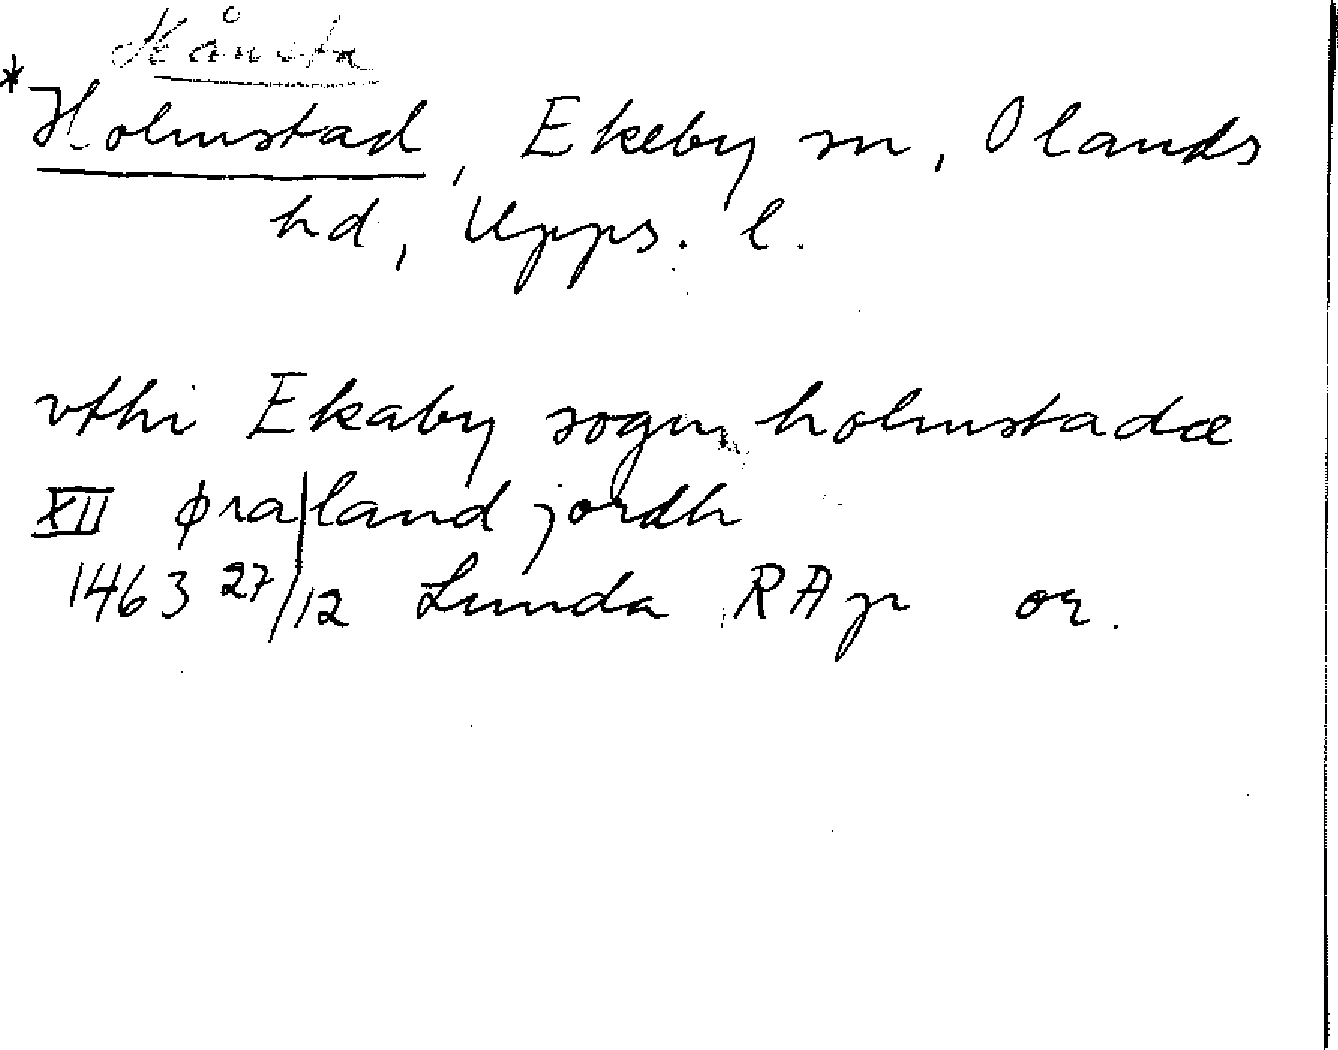 Hånsta
*Holmstad, Ekeby sn, Olands
hd, Upps. l.
vthi Ekaby sogn holmstadæ
XII øra|land jordh
1463 27/12 Lunda RAp or.